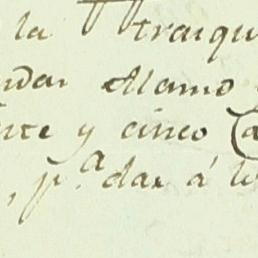 la traiqu
ndar Mamo
nte y cinco
, p.ª dar á